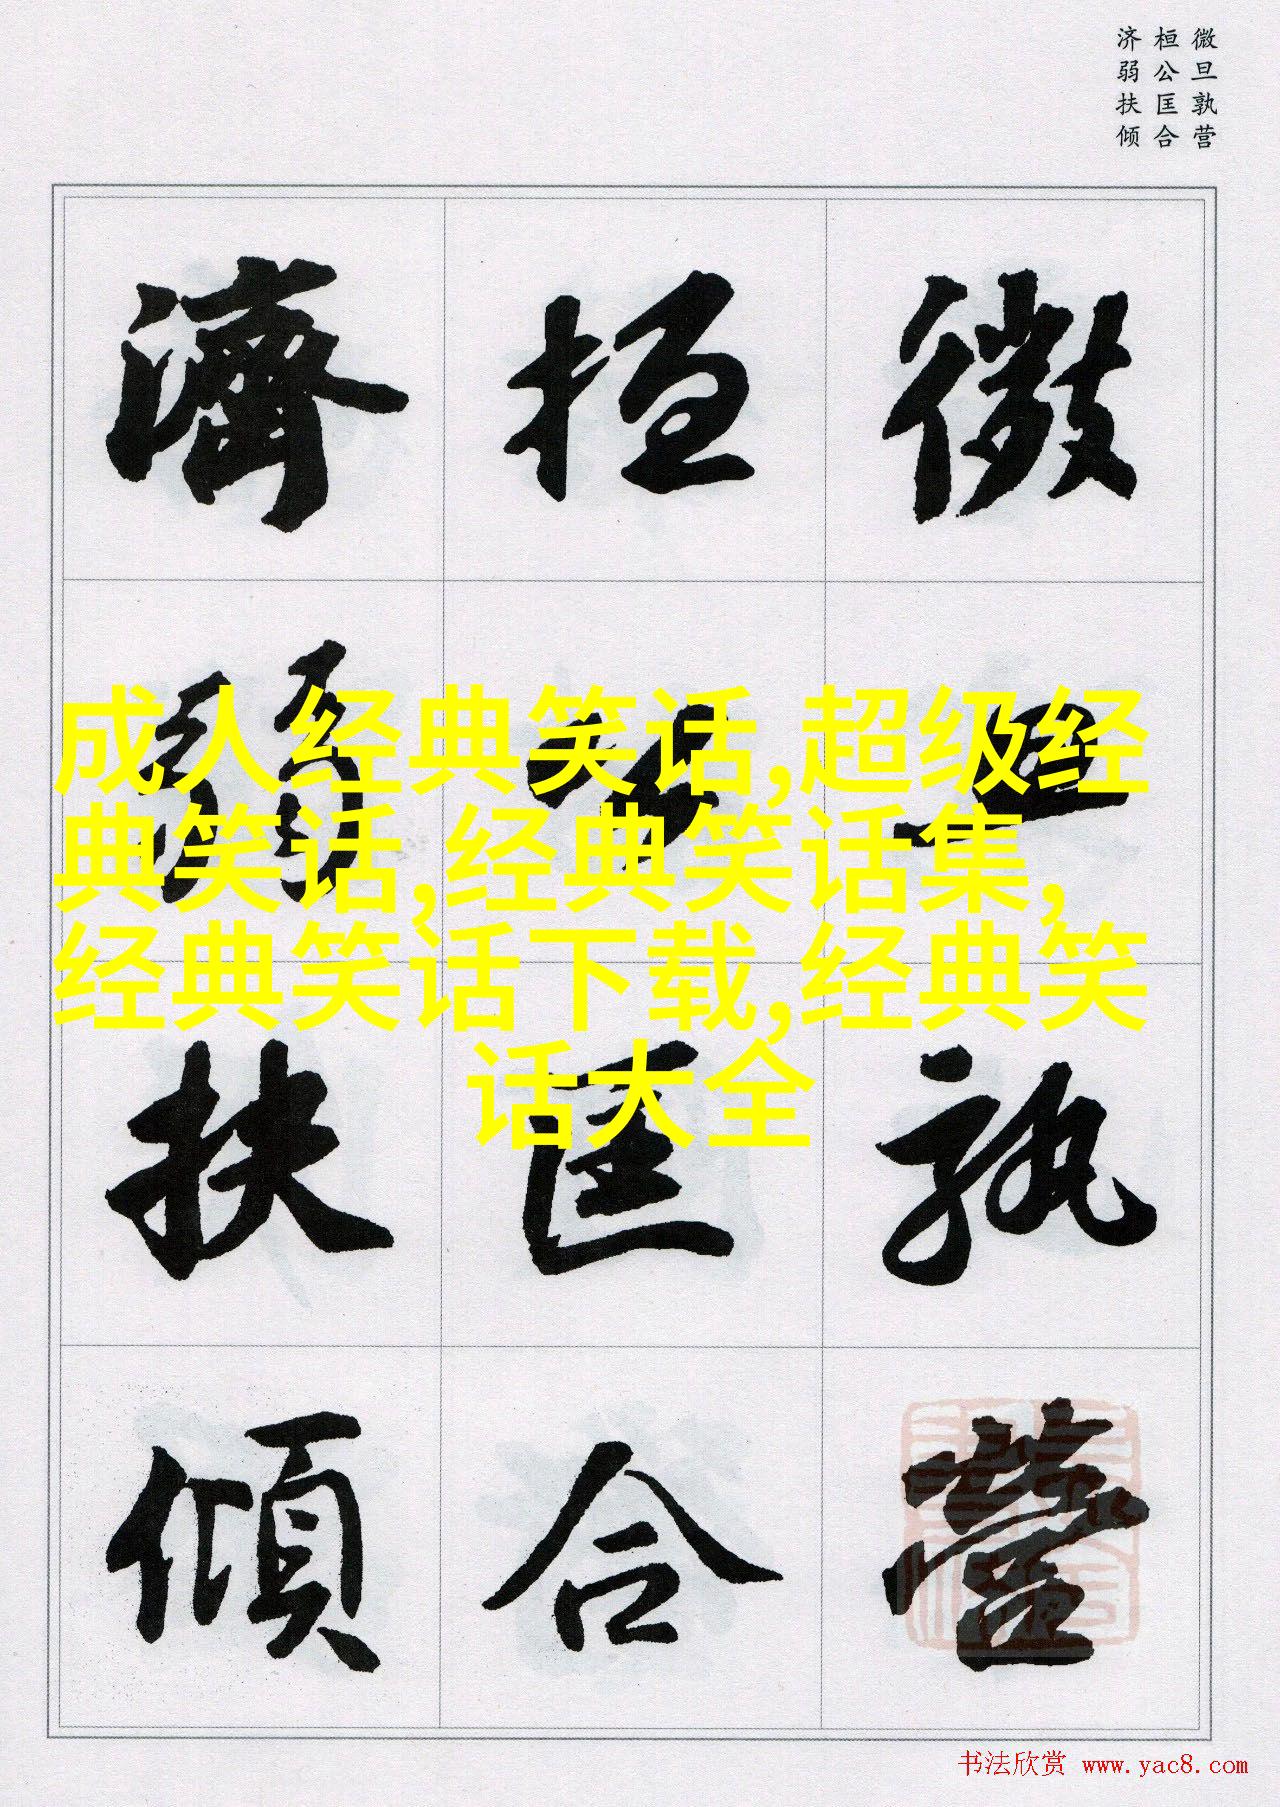 微旦孰营
桓公匡合
济弱扶倾
微旦孰營
桓公匡合
濟弱扶傾
成人经典笑话,超级经
典笑话,经典笑话集,
经典笑话下载,经典笑
话大全
书法欣赏 www.yac8.com